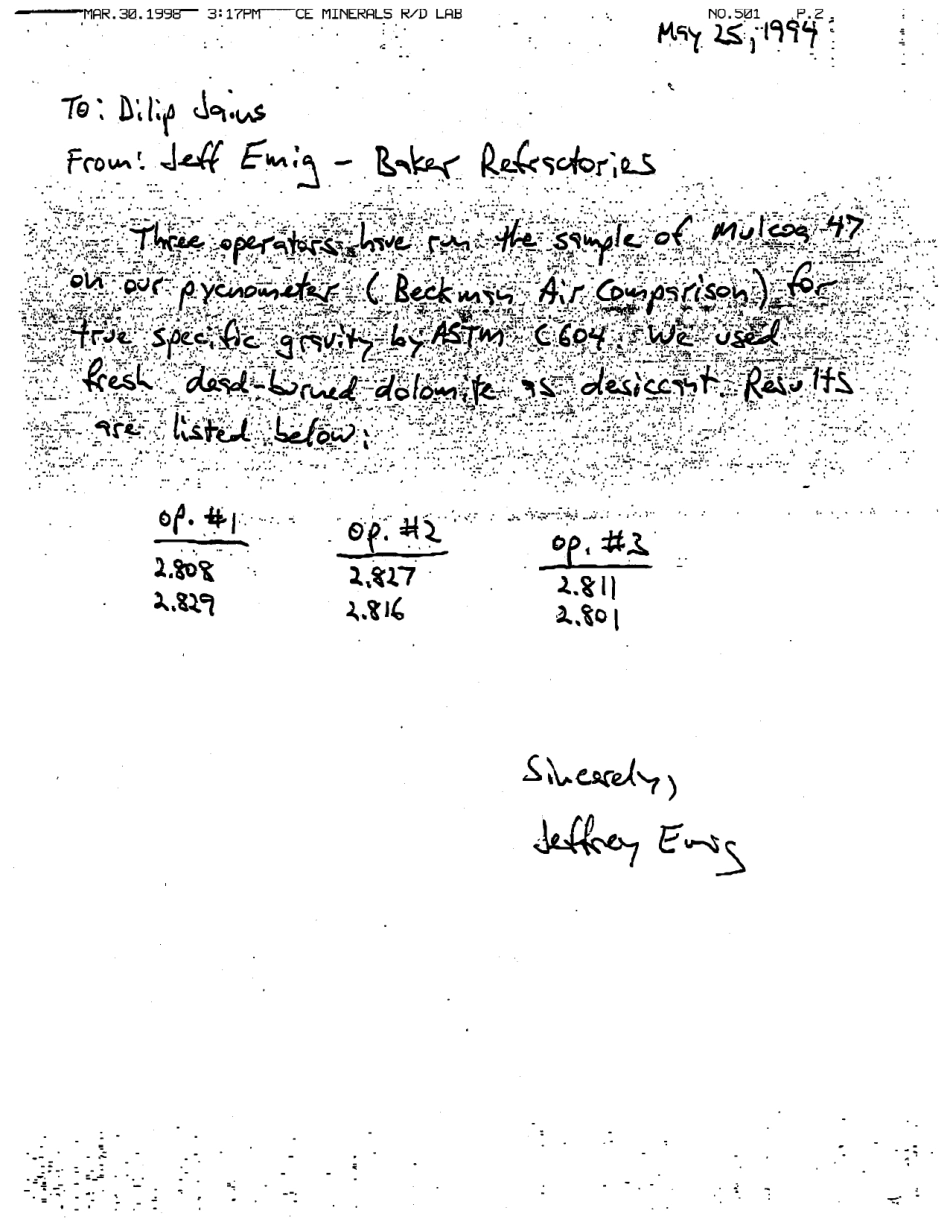 MAR.30.1998 3:17PM CE MINERALS R/D LAB NO.501 P.2
May 25, 1994
To: Dilip Jains
From: Jeff Emig - Baker Refractories
Three operators have run the sample of Mulcoa 47
on our pycnometer (Beckman Air Comparison) for
true specific gravity by ASTM C604. We used
fresh dead-burned dolomite as desiccant. Results
are listed below:
op. #1 op. #2 op. #3
2.808 2.827 2.811
2.829 2.816 2.801
Sincerely,
Jeffrey Emig